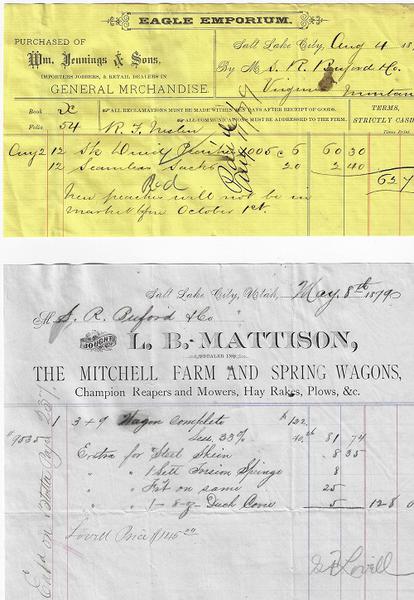 EAGLE EMPORIUM.
PURCHASED OF
Salt Lake City, Aug 4 18
Wm. Jennings & Sons,
By M S. R. Buford & Co.
IMPORTERS JOBBERS, & RETAIL DEALERS IN
Virginia
GENERAL MRCHANDISE.
Book X
ALL RECLAMATIONS MUST BE MADE WITHIN DAYS AFTER RECEIPT OF GOODS.
TERMS,
Folio 54
ALL COMMUNICATIONS MUST BE ADDRESSED TO THE FIRM.
STRICTLY CASH
R. T.
Aug 2 12 Sks 1005 6 60 30
12 Seamless Sacks 20 2 40
62 7
New peaches will not be in
market fore October 1st.
Salt Lake City, Utah, May 8th 1879
M S. R. Buford & Co
BOUGHT OF
L. B. MATTISON,
DEALER IN
THE MITCHELL FARM AND SPRING WAGONS,
Champion Reapers and Mowers, Hay Rakes, Plows, &c.
1 3 + 9 Wagon Complete $ 122.
#9535 Less 33% 81 74
Extra for Steel Skein 8 35
" " 1 Sett Torsion Springs 8
" " Frt on same 25
" " 1 - 8 oz Duck Cover 5 128 0
Lovill Price $145
Lovill